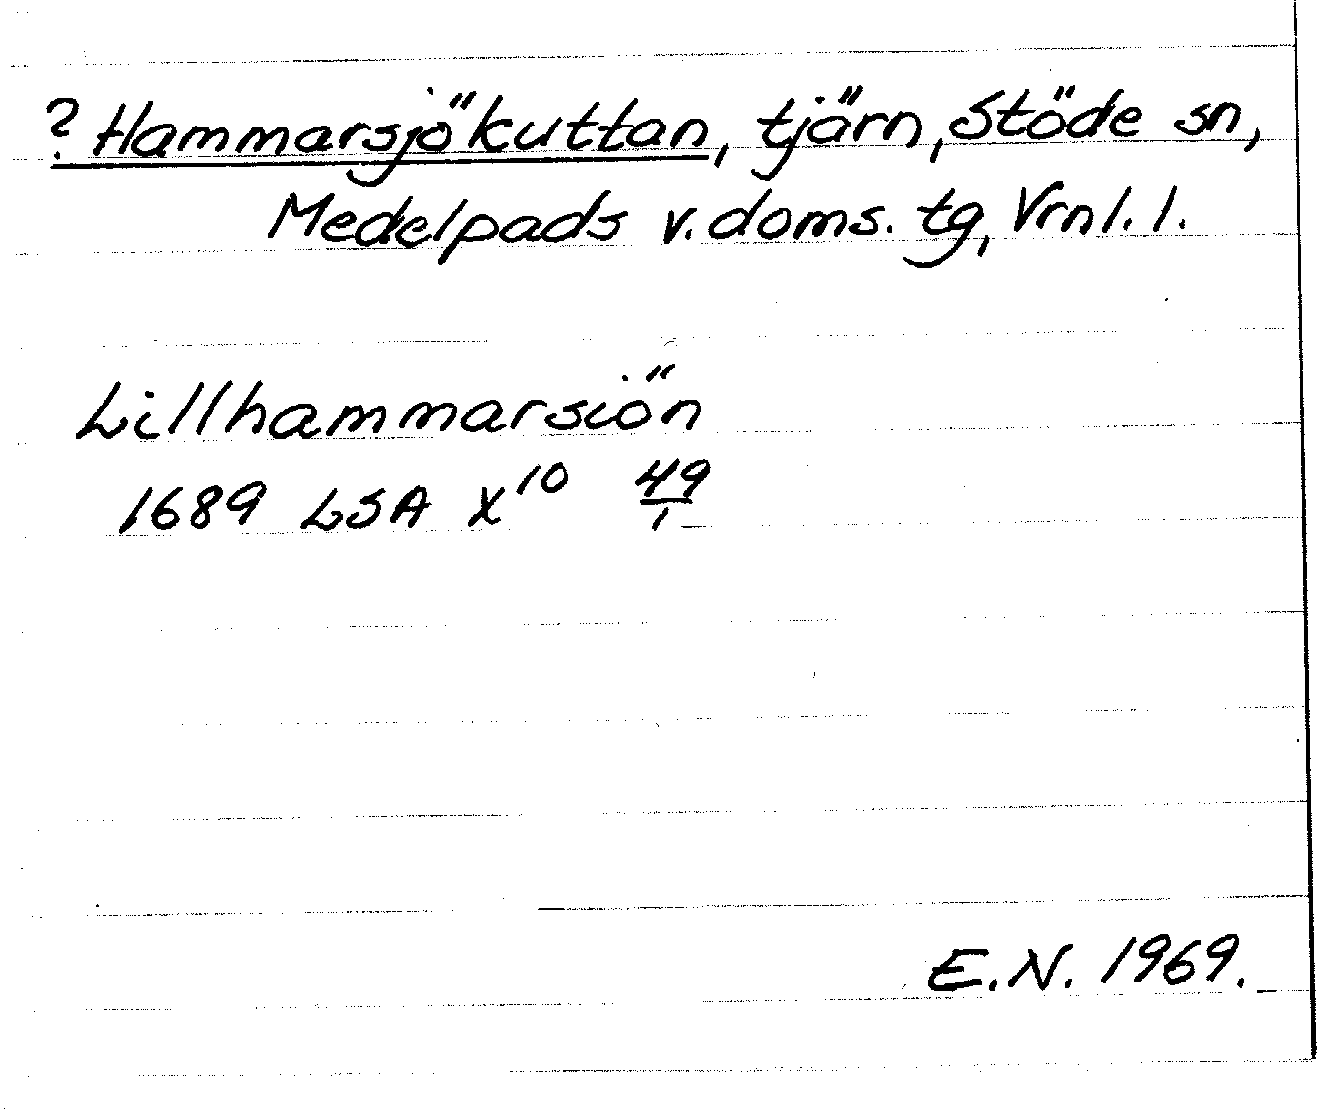 ? Hammarsjökuttan, tjärn, Stöde sn,
Medelpads v. doms. tg, Vrnl. l.
Lillhammarsiön
1689 LSA X¹⁰ 49/1
E.N. 1969.